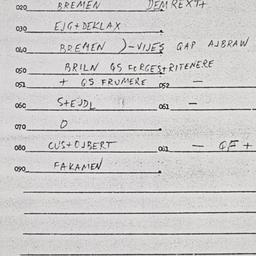 020 BREMEN DEMREXT+
030 EJG+DEKLAX
040 BREMEN )-VIJES GAP AJBRAW
050 BRILN GS FORGES+RITENERE
051 + GS FRUMERE 052 —
060 S+EJDL 061 —
070 O
080 CUS+OJBERT 061 — GF +
090 FAKAMEN